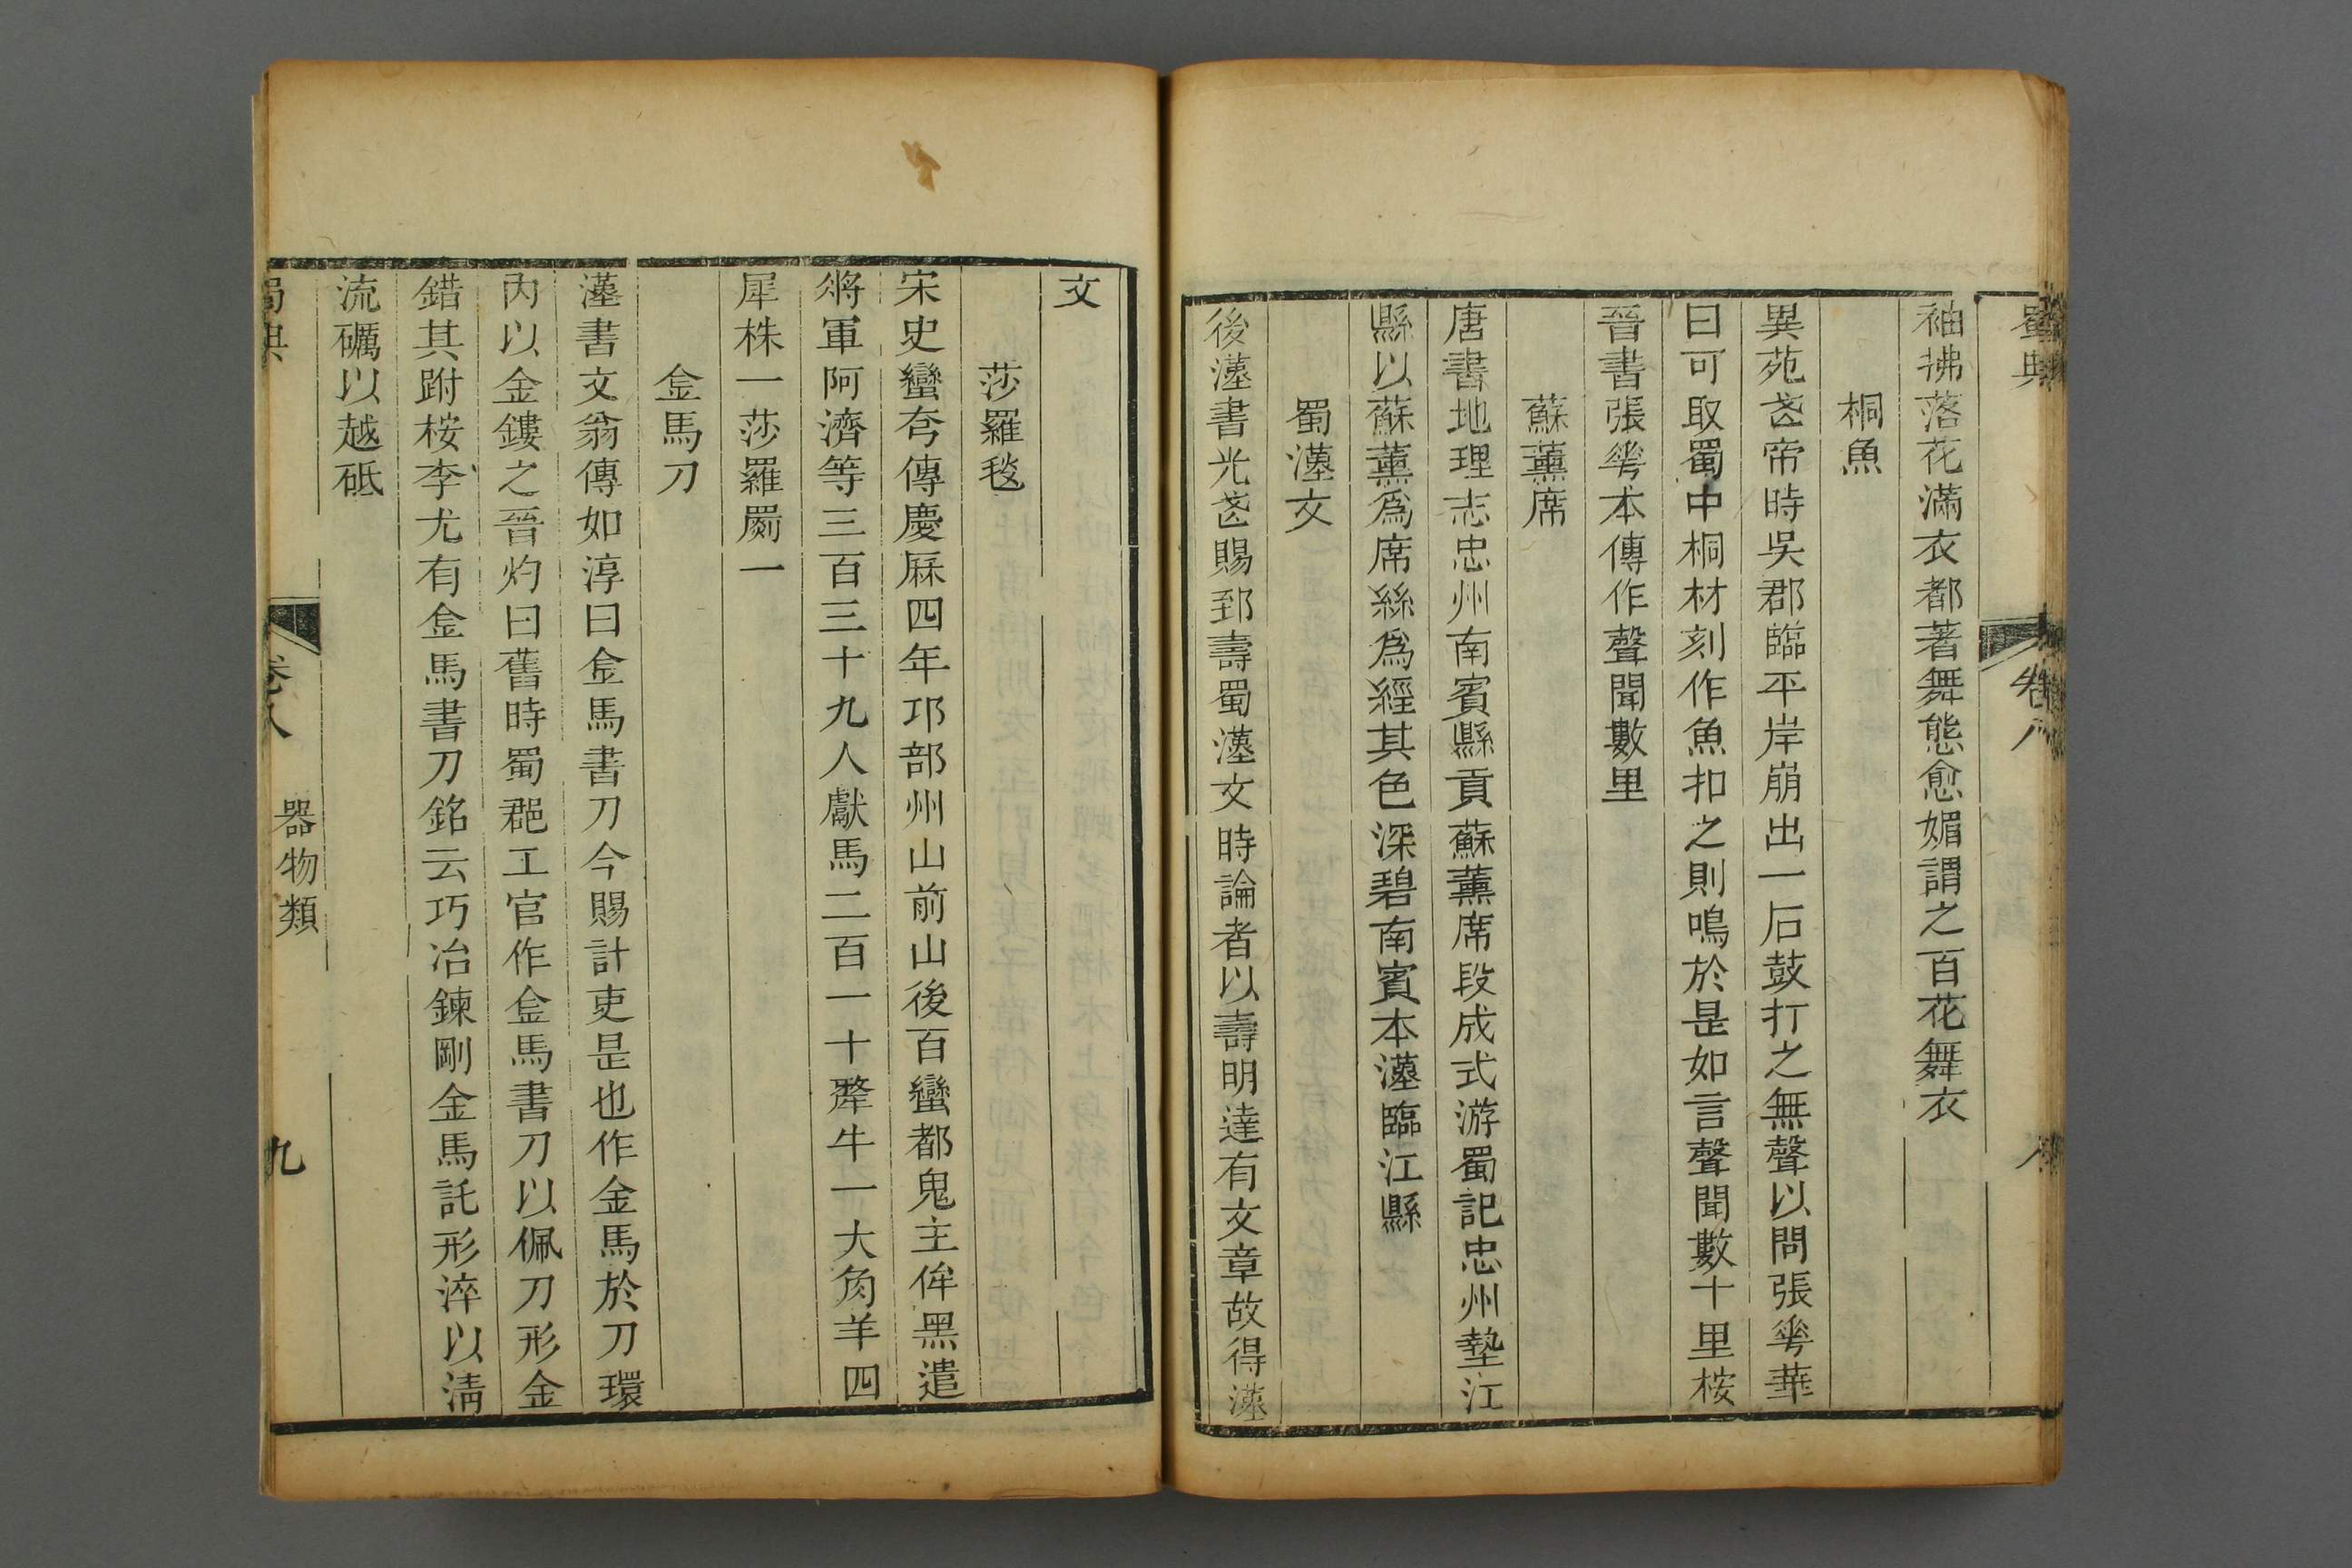 蜀典
卷八
八
袖拂落花滿衣都著舞態愈媚謂之百花舞衣
桐魚
異苑武帝時吳郡臨平岸崩出一石鼓打之無聲以問張華華
曰可取蜀中桐材刻作魚扣之則鳴於是如言聲聞數十里桉
晉書張華本傳作聲聞數里
蘇薰席
唐書地理志忠州南賓縣貢蘇薰席段成式游蜀記忠州墊江
縣以蘇薰爲席絲爲經其色深碧南賓本漢臨江縣
蜀漢文
後漢書光武賜郅壽蜀漢文時論者以壽明達有文章故得漢
文
莎羅毯
宋史蠻夷傳慶厤四年邛部州山前山後百蠻都鬼主侔黑遣
將軍阿濟等三百三十九人獻馬二百一十犛牛一大角羊四
犀株一莎羅罽一
金馬刀
漢書文翁傳如淳曰金馬書刀今賜計吏是也作金馬於刀環
內以金鏤之晉灼曰舊時蜀郡工官作金馬書刀以佩刀形金
錯其跗桉李尤有金馬書刀銘云巧冶鍊剛金馬託形淬以清
流礪以越砥
蜀典
卷八
器物類
九